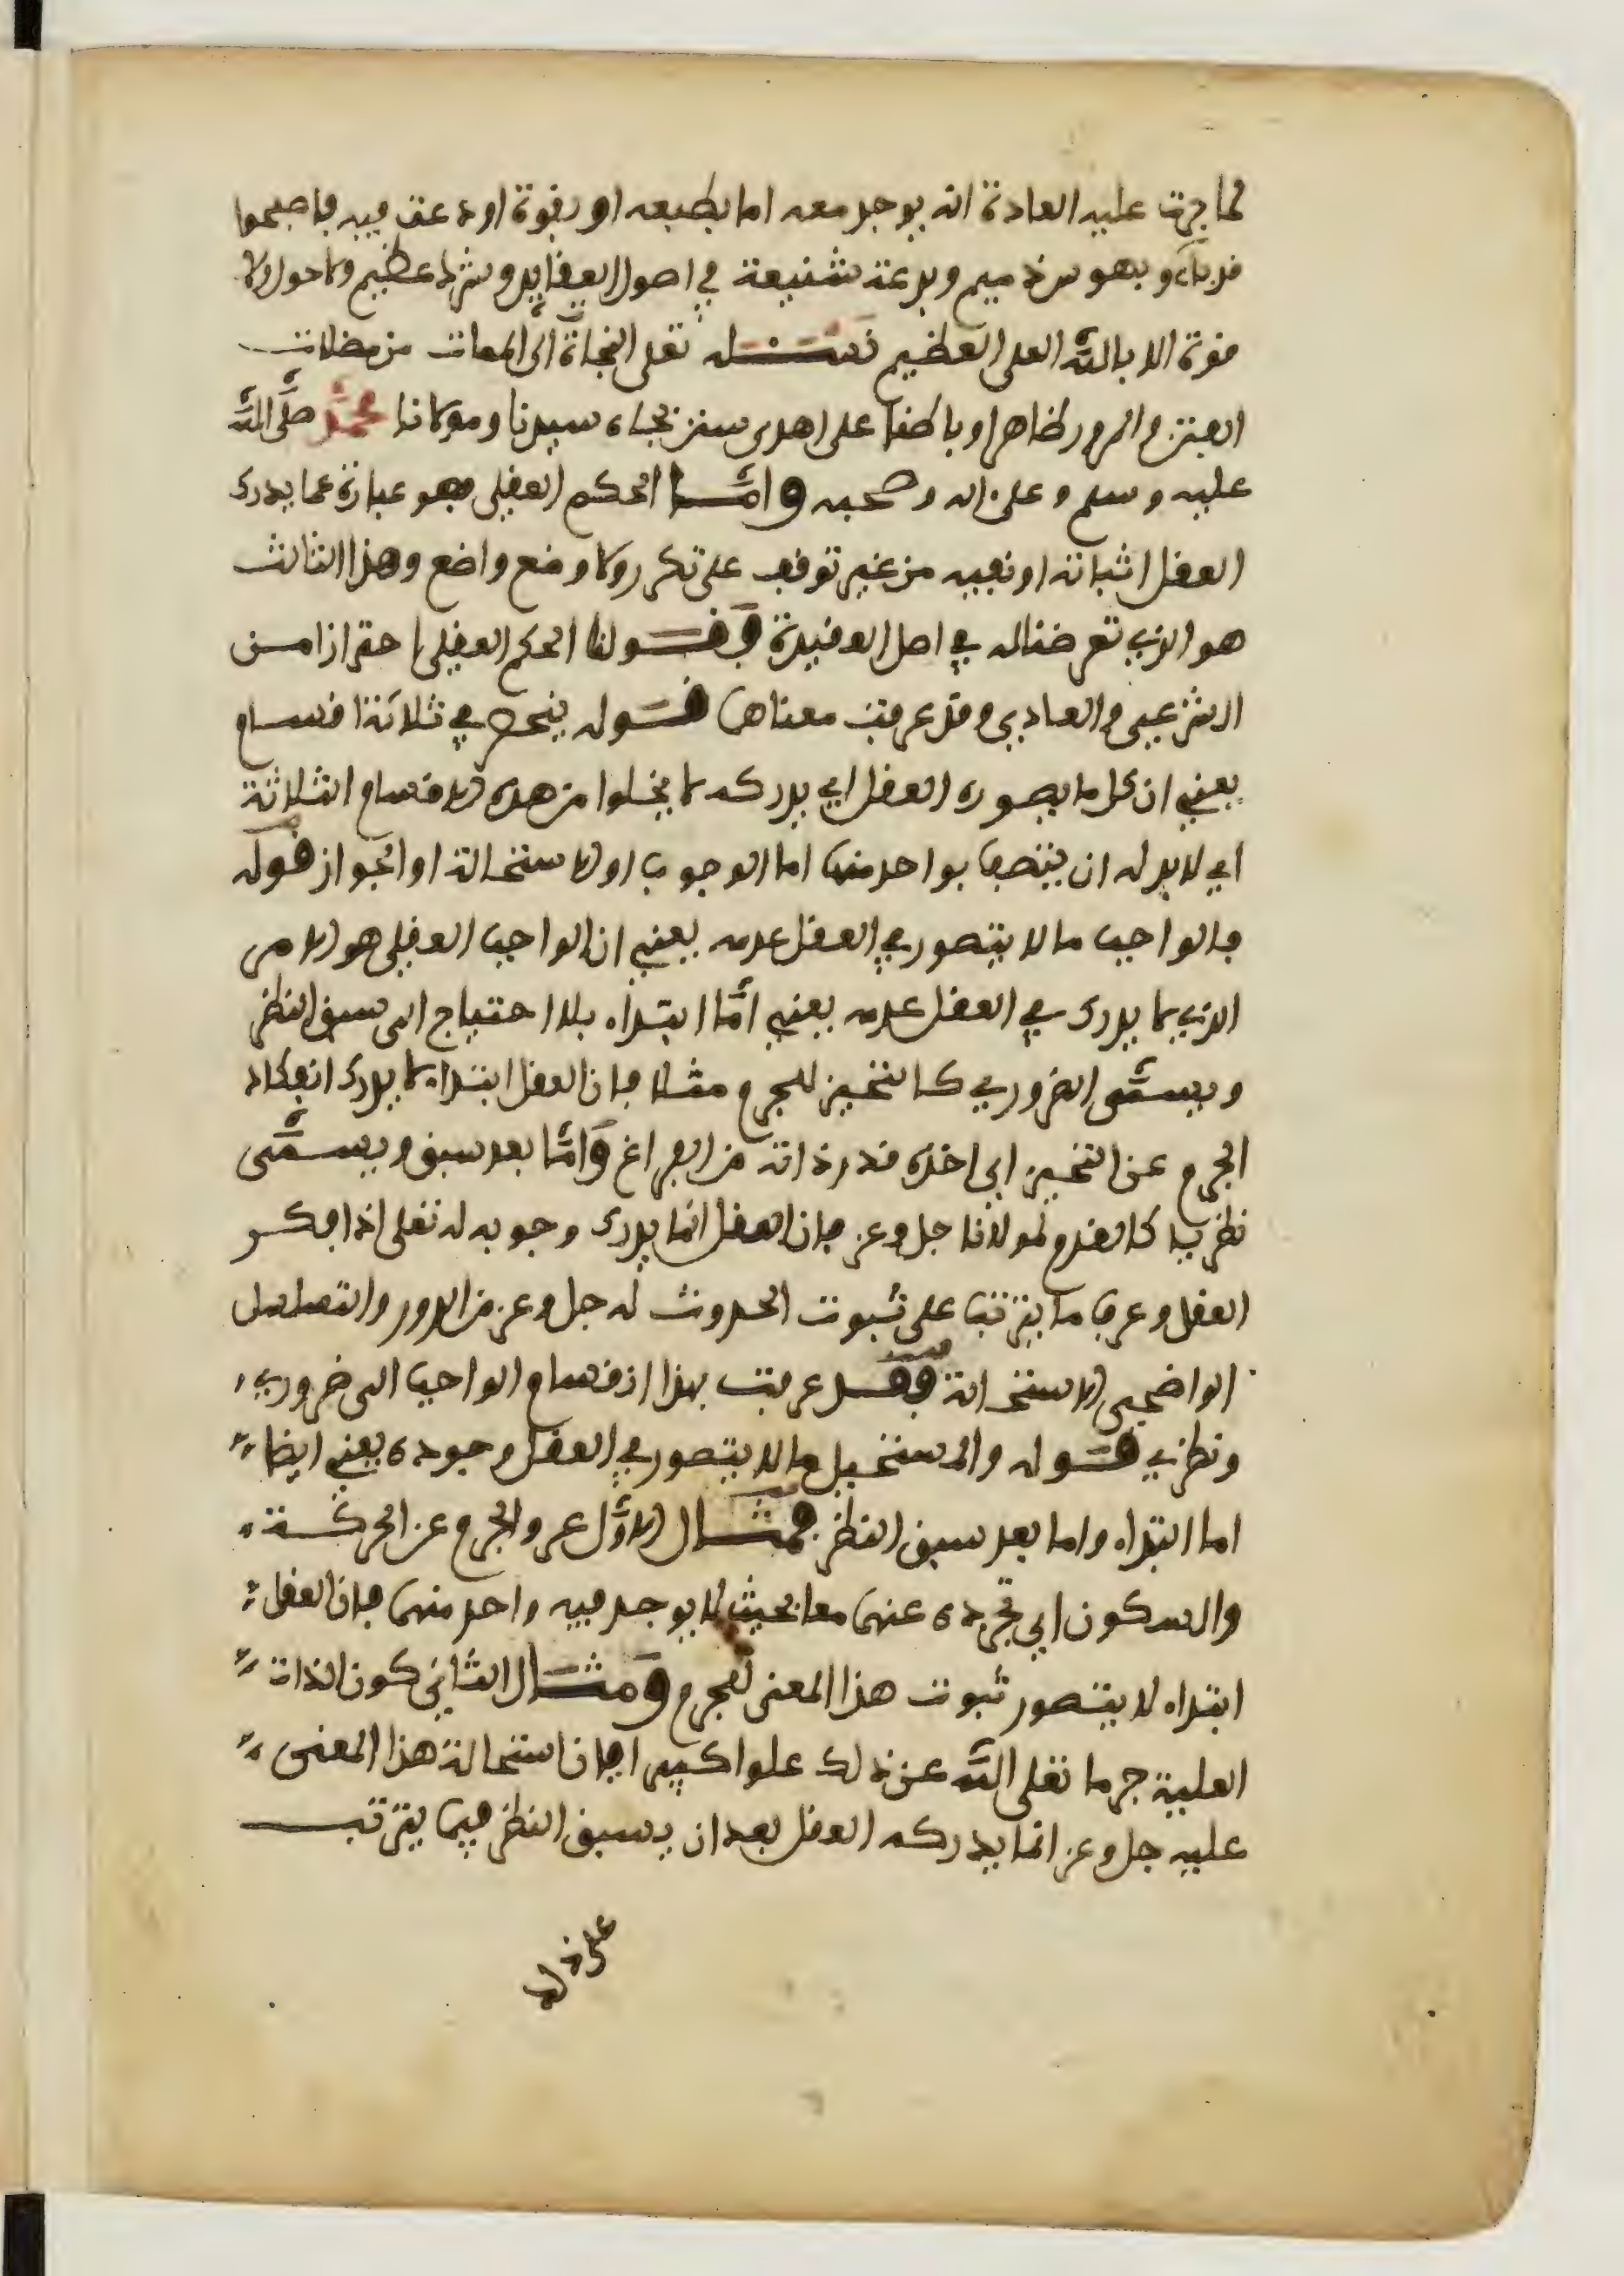 لما جرت عليه العادة انه يوجد معه اما بطبعه او بقوة اودعت فيه فاصبحوا
قد باءو بهوس ذميم وبدعة شنيعة في اصول العقايد وشرك عظيم ولا حول ولا
قوة الا بالله العلي العظيم نسئله تعلى النجاة الى الممات من مضلات
الفتن والمرور ظاهرا وباطنا على اهدى سنن بجاه سيدنا ومولانا محمد صلى الله
عليه وسلم وعلى اله وصحبه واما الحكم العقلي فهو عبارة عما يدرك
العقل اثباته او نفيه من غير توقف على تكرر ولا وضع واضع وهذا الثالث
هو الذي تعرضنا له في اصل العقيدة فقولنا الحكم العقلي احترازا من
الشرعي والعادي وقد عرفت معناهما قوله ينحصر في ثلاثة اقسام
يعني ان كل ما يصوره العقل اي يدركه لا يخلوا من هذه الاقسام الثلاثة
اي لا بد له ان يتصف بواحد منها اما الوجوب او الاستحالة او الجواز قوله
فالواجب ما لا يتصور في العقل عدمه يعني ان الواجب العقلي هو الامر
الذي لا يدرك في العقل عدمه يعني اما ابتداء بلا احتياج الى سبق النظر
ويسمى الضروري كالتحيز للجرم مثلا فان العقل ابتداء لا يدرك انفكاك
الجرم عن التحيز اي اخذه قدر ذاته من الفراغ واما بعد سبق ويسمى
نظريا كالقدم لمولانا جل وعز فان العقل انما يدرك وجوبه له تعلى اذا فكر
العقل وعرف ما يترتب على ثبوت الحدوث له جل وعز من الدور والتسلسل
الواضحي الاستحالة فقد عرفت بهذا انقسام الواجب الى ضروري
ونظري قوله والمستحيل ما لا يتصور في العقل وجوده يعني ايضا
اما ابتداء واما بعد سبق النظر فمثال الاول عرو الجرم عن الحركة
والسكون اي تجرده عنهما معا بحيث لا يوجد فيه واحد منهما فان العقل
ابتداء لا يتصور ثبوت هذا المعنى للجرم ومثال الثاني كون الذات
العلية جرما تعلى الله عن ذلك علوا كبيرا فان استحالة هذا المعنى
عليه جل وعز انما يدركه العقل بعد ان يسبق النظر فيما يترتب
على ذلك